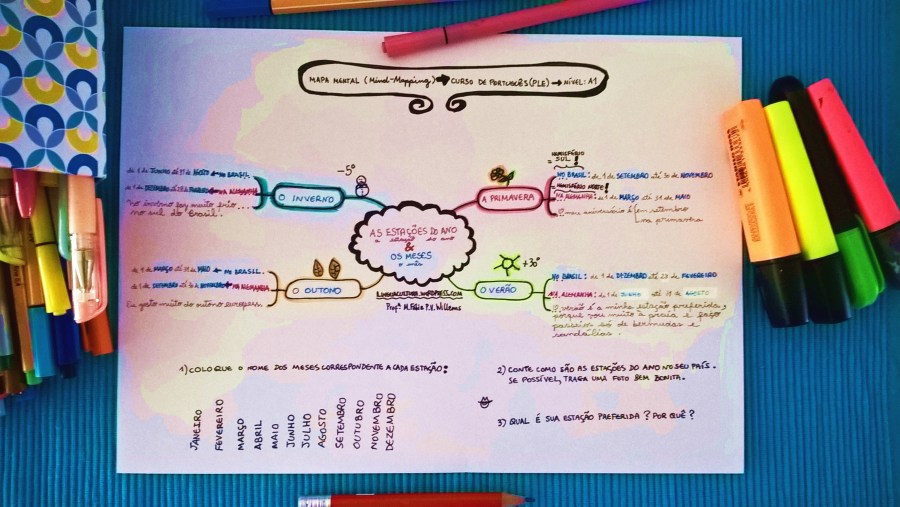 MAPA MENTAL (Mind-Mapping) ➡ CURSO DE PORTUGUÊS (PLE) → NÍVEL: A1
de 1 de JUNHO até 31 de AGOSTO ← NO BRASIL.
de 1 de DEZEMBRO até 28 de FEVEREIRO ← NA ALEMANHA
"No inverno faz muito frio... no sul do Brasil."
O INVERNO
-5°
A PRIMAVERA
HEMISFÉRIO SUL!
NO BRASIL: de 1 de SETEMBRO até 30 de NOVEMBRO
= HEMISFÉRIO NORTE!
NA ALEMANHA: de 1 de MARÇO até 31 de MAIO
O meu aniversário é em setembro na primavera
AS ESTAÇÕES DO ANO
a estação do ano
&
OS MESES
o mês
de 1 de MARÇO até 31 de MAIO ← NO BRASIL.
de 1 de SETEMBRO até 30 de NOVEMBRO ← NA ALEMANHA
Eu gosto muito do outono europeu.
O OUTONO
O VERÃO
+30°
NO BRASIL: de 1 de DEZEMBRO até 28 de FEVEREIRO
NA ALEMANHA: de 1 de JUNHO até 31 de AGOSTO
O verão é a minha estação preferida,
porque vou muito à praia e faço
passeios só de bermudas e
sandálias.
LINGUACULTURA.WORDPRESS.COM
Profª M. Fábia P.V. Willems
1) COLOQUE O NOME DOS MESES CORRESPONDENTE A CADA ESTAÇÃO:
JANEIRO
FEVEREIRO
MARÇO
ABRIL
MAIO
JUNHO
JULHO
AGOSTO
SETEMBRO
OUTUBRO
NOVEMBRO
DEZEMBRO
2) CONTE COMO SÃO AS ESTAÇÕES DO ANO NO SEU PAÍS.
SE POSSÍVEL, TRAGA UMA FOTO BEM BONITA.
3) QUAL É SUA ESTAÇÃO PREFERIDA? POR QUÊ?